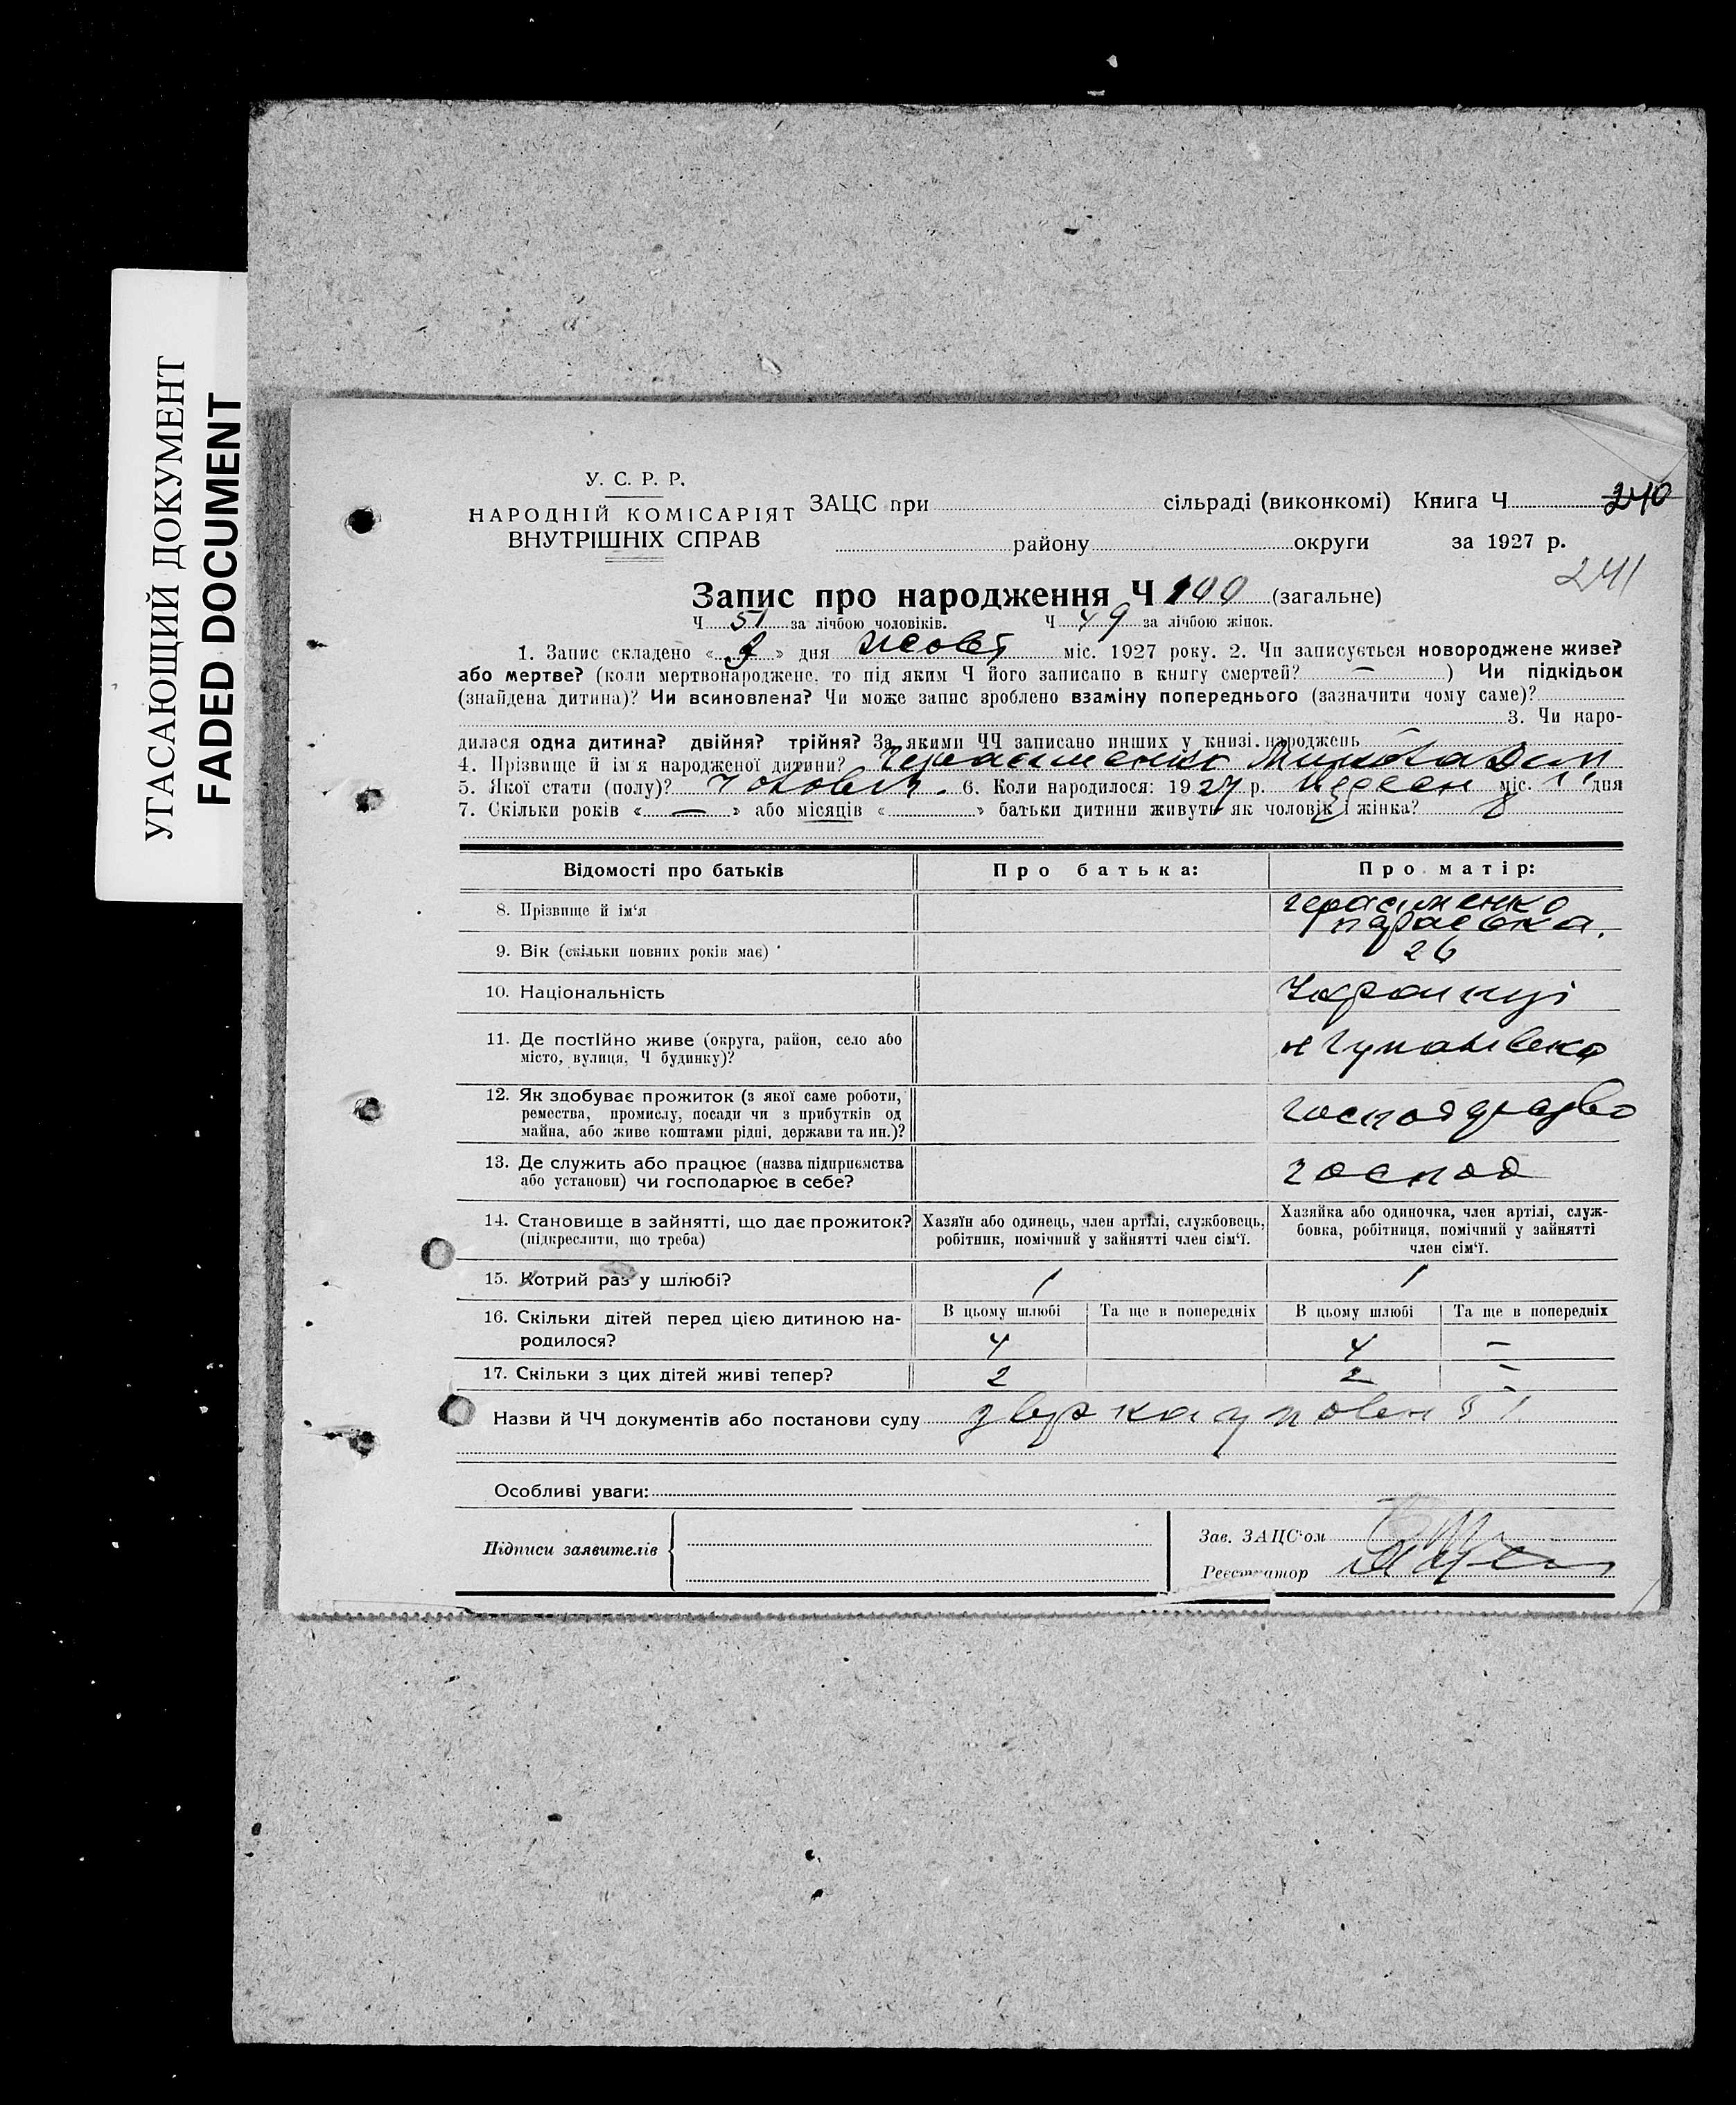 УГАСАЮЩИЙ ДОКУМЕНТ
FADED DOCUMENT
У. С. Р. Р.
НАРОДНІЙ КОМІСАРІЯТ
ВНУТРІШНІХ СПРАВ
ЗАЦС при сільраді (виконкомі) Книга Ч 240
району округи за 1927 р.
241
Запис про народження Ч 100 (загальне)
Ч 51 за лічбою чоловіків. Ч 49 за лічбою жінок.
1. Запис складено « » дня жовт міс. 1927 року. 2. Чи записується новороджене живе?
або мертве? (коли мертвонароджене, то під яким Ч його записано в книгу смертей? — ) Чи підкідьок
(знайдена дитина)? Чи всиновлена? Чи може запис зроблено взаміну попереднього (зазначити чому саме)?
3. Чи наро-
дилася одна дитина? двійня? трійня? За якими ЧЧ записано инших у книзі народжень —
4. Прізвище й ім'я народженої дитини? Герасименко Микола
5. Якої стати (полу)? Чоловіч. 6. Коли народилося: 1927 р. міс. дня
7. Скільки років « — » або місяців « » батьки дитини живуть як чоловік і жінка? 8
Відомості про батьків
Про батька:
Про матір:
8. Прізвище й ім'я
герасименко
параска.
9. Вік (скільки повних років має)
26
10. Національність
Україниці
11. Де постійно живе (округа, район, село або
місто, вулиця, Ч будинку)?
12. Як здобуває прожиток (з якої саме роботи,
ремества, промислу, посади чи з прибутків од
майна, або живе коштами рідні, держави та ин.)?
13. Де служить або працює (назва підприємства
або установи) чи господарює в себе?
господ
14. Становище в зайнятті, що дає прожиток?
(підкреслити, що треба)
Хазяїн або одинець, член артілі, службовець,
робітник, помічний у зайнятті член сім'ї.
Хазяйка або одиночка, член артілі, служ-
бовка, робітниця, помічний у зайнятті
член сім'ї.
15. Котрий раз у шлюбі?
1
1
16. Скільки дітей перед цією дитиною на-
родилося?
В цьому шлюбі
Та ще в попередніх
В цьому шлюбі
Та ще в попередніх
4
4
—
17. Скільки з цих дітей живі тепер?
2
2
—
Назви й ЧЧ документів або постанови суду
Особливі уваги:
Підписи заявителів
Зав. ЗАЦС'ом
Реєстратор